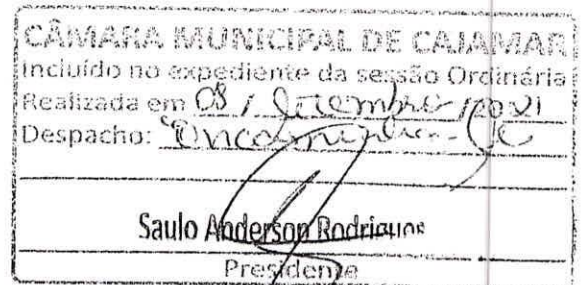 CÂMARA MUNICIPAL DE CAJAMAR
Incluído no expediente da sessão Ordinária
Realizada em 08 / Setembro / 2021
Despacho: "Encaminha-se
Saulo Anderson Rodrigues
Presidente